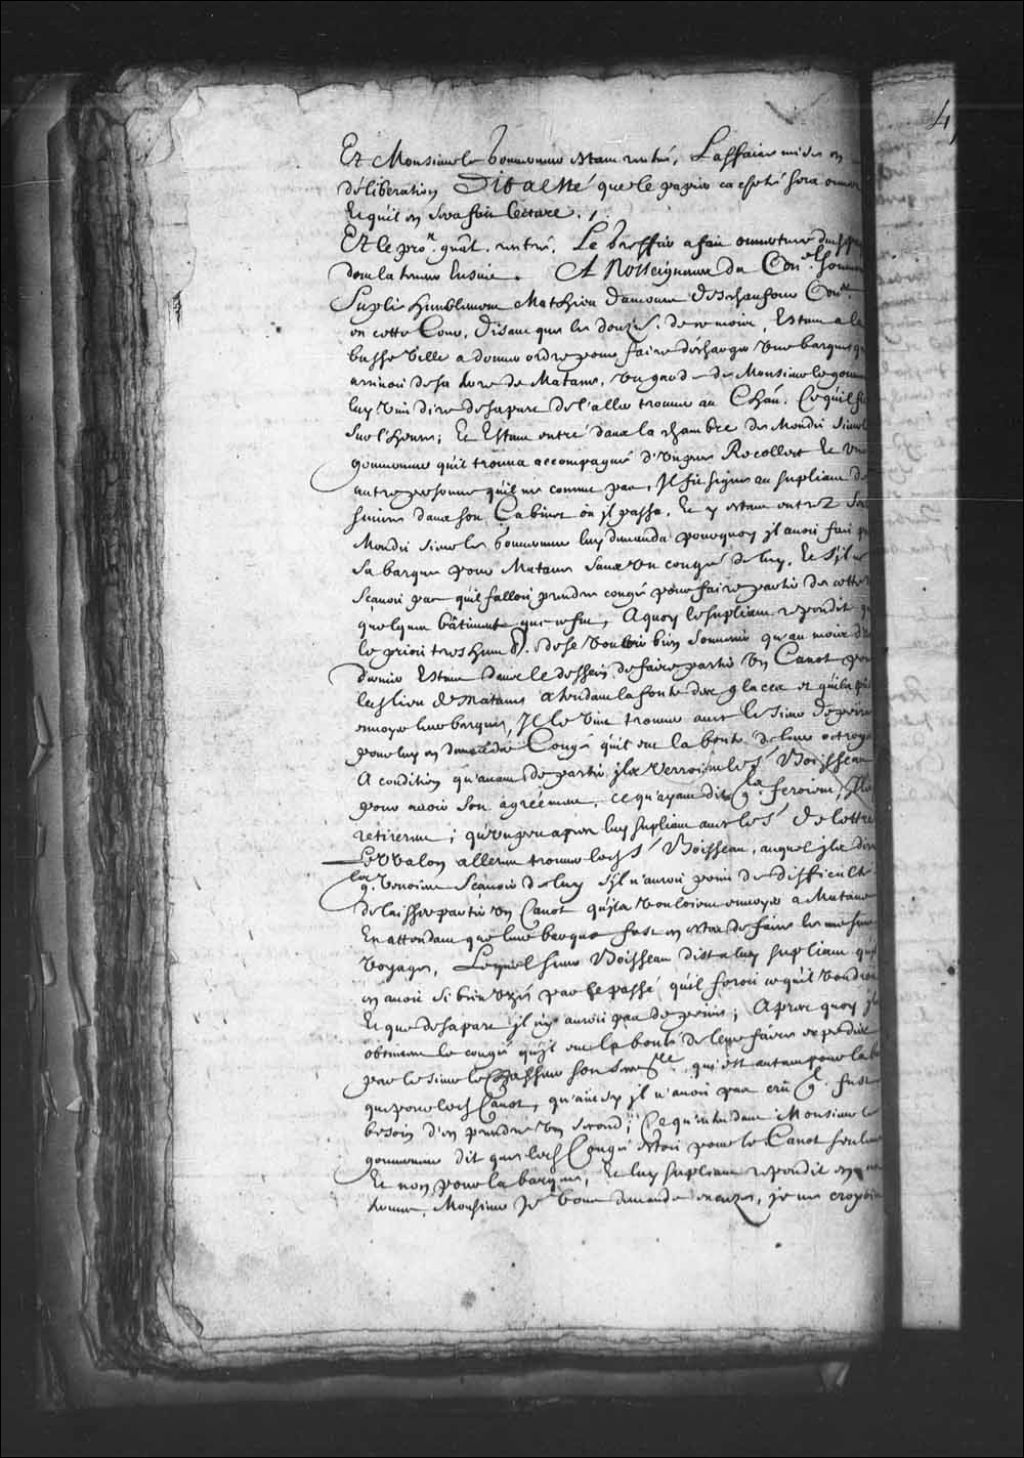 4
Et Monsieur le Gouverneur estant rentré, L'affaire mise en
déliberation Dit a esté que le papier cacheté sera ouvert
Et qu'il en sera fait lecture.
Et le pro.r gnãl rentré, Le greffier a fait ouverture dud
dont la teneur Ensuit. A Nosseigneurs du Con.el Souverain
Suplie humblement Matthieu Damours Deschaufour Con.er
en cette Cour, disant que le douze de ce mois, Estant a la
basse Ville a donner ordre pour faire décharger une barque qu
arrivoit de sa terre de Matane, un garde de Monsieur le gouver
luy vint dire de sa part de l'aller trouver au Chãu. Ce qu'il fit
Sur l'heure; Et Estant entré dans la chambre de Mondit Sieur le
gouverneur qu'il trouva accompagné d'un pere Recollect et une
autre personne qu'il ne connut pas, Il fit signe au supliant de
suivre dans son Cabinet où il passa, Et y estant entrez
Mondit Sieur le Gouverneur luy demanda pourquoy il avoit fait p
sa barque pour Matane sans un congé de luy, Et s'il ne
sçavoit pas qu'il falloit prendre congé pour faire partir de cette
quelques bâtiments que ce fut, A quoy le supliant repondit qu
le prioit tres humb.t de se vouloir bien souvenir qu'au mois d'a
dernier Estant dans le dessein de faire partir un Canot pour
led. lieu de Matane attendant la fonte des glaces et qu'il pût
envoyer leur barque, Il le vint trouver avec le Sieur de
pour luy en demander Congé qu'il eut la bonté de leur octroyer
A condition qu'avant de partir ils verroient le S.r Boisseau
pour avoir son agréement, ce qu'ayant dit q. feroient, Ils
retirerent; qu'un peu apres luy supliant avec les S.rs de Lottre
et Vvalon allerent trouver led. S.r Boisseau, auquel ils dirent
q. venoient sçavoir de luy s'il n'auroit point de difficulté
de laisser partir un Canot qu'ils vouloient envoyer a Matane
En attendant que leur barque fust en estat de faire le mesme
voyage, Lequel sieur Boisseau dist a luy supliant qu'il
en avoit si bien uzé par le passé qu'il feroit ce qu'il voudroit
Et que de sa part il n'y auroit pas de peine; Apres quoy ils
obtinrent le congé qu'il eut la bonté de leur faire expedier
par le sieur le Chasseur son secr.re, qui est autant pour la bar
que pour led. Canot, qu'ainsy il n'avoit pas crû q. fust
besoin d'en prendre un second; Ce qu'entendant Monsieur le
gouverneur dit que led. Congé estoit pour le Canot seulement
Et non pour la barque, Et luy supliant repondit en
termes, Monsieur Je vous demande excuse, je ne croyois